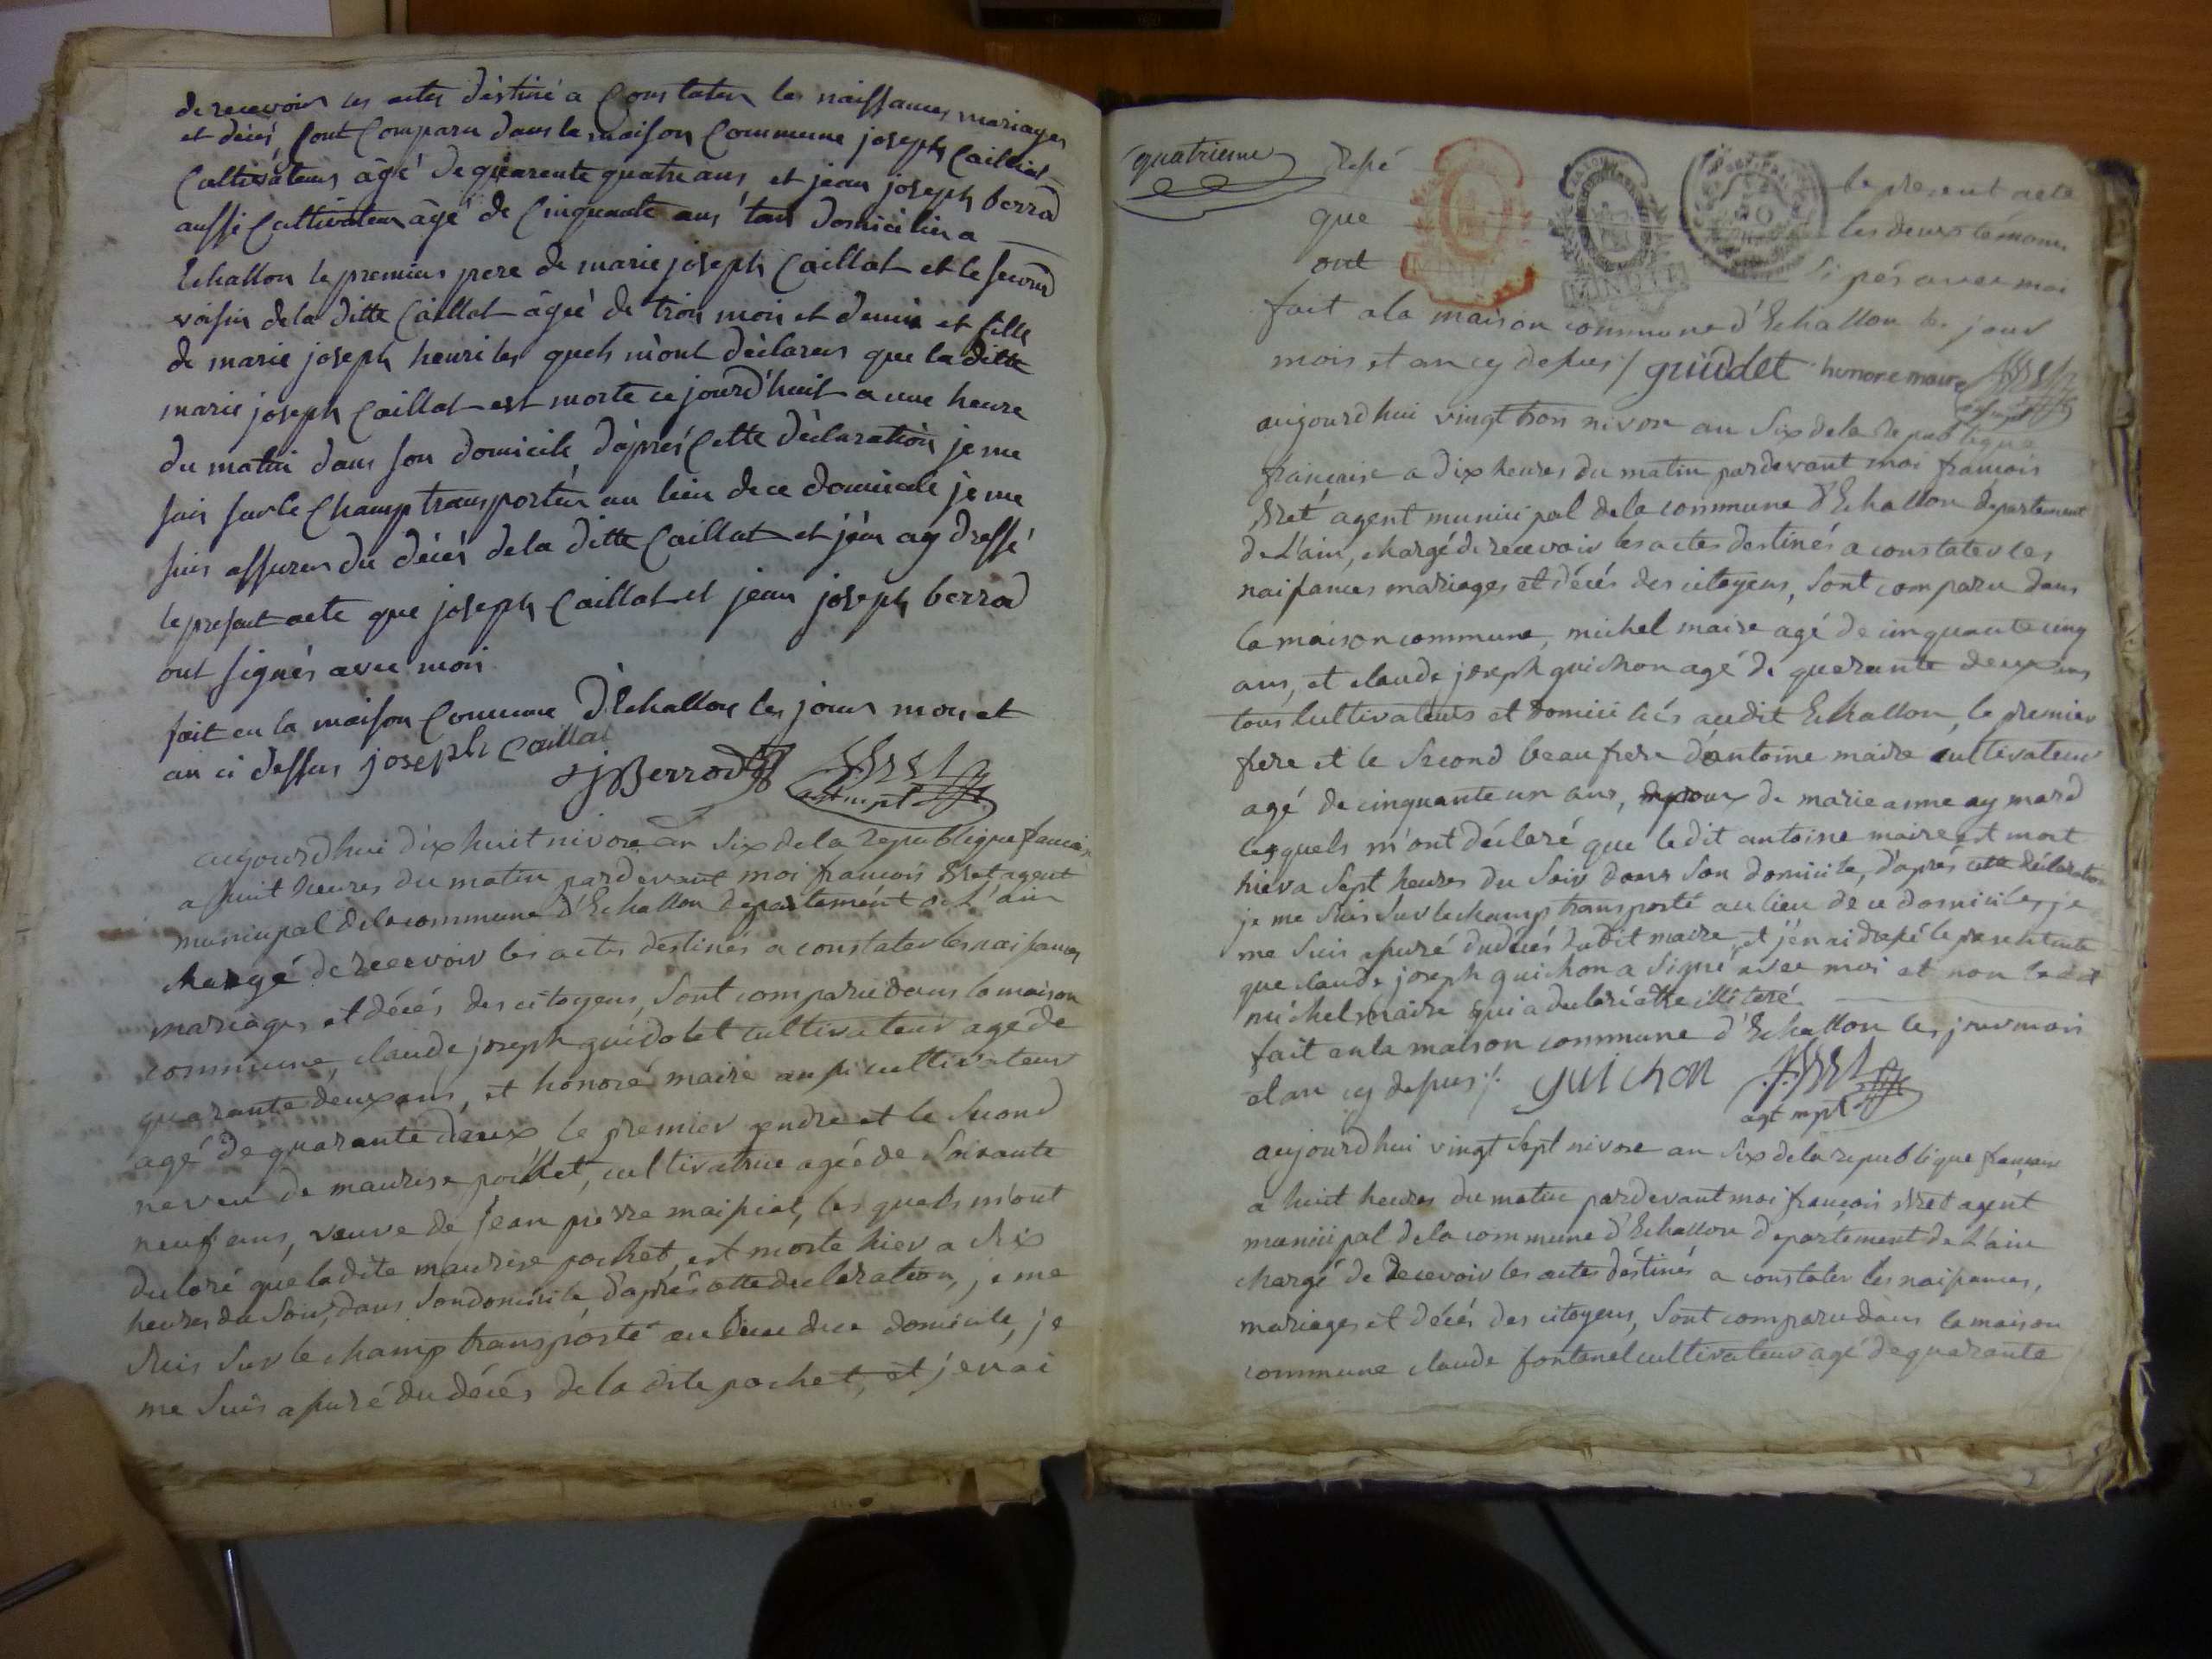 de recevoir les actes destiné a Constater les naissances mariages
et décés, sont Comparu dans la maison Commune joseph Caillat
Cultivateur âgé de quarente quatre ans et jean joseph berrod
aussi Cultivateur âgé de Cinquante ans tous domicilier a
Echallon le premier pere de marie joseph Caillat et le second
voisin de la ditte Caillat âgée de trois mois et demie et fille
de marie joseph henri les quels m'ont déclarer que la ditte
marie joseph Caillat est morte ce jourd'huit a une heure
du matin dans son domicile d'après Cette déclaration je me
suis sur le Champ transporter au lieu de ce domicile je me
suis assurer du décés de la ditte Caillat et j'en ay dressé
le present acte que joseph Caillat et jean joseph berrod
ont signés avec moi
fait en la maison Commune d'Echallon les jour mois et
an ci dessus joseph Caillat
jjBerrod
agt mpl
aujourdhui dix huit nivose an Six de la republique francaise
a huit heures du matin pardevant moi francois Bret agent
municipal de la commune d'Echallon departement de L'ain
chargé de recevoir les actes destinés a constater les naissances
mariages et décés des citoyens, Sont comparu dans la maison
commune, claude joseph guidolet cultivateur agé de
quarante deux ans, et honoré maire aussi cultivateur
agé de quarante deux le premier gendre et le Second
neveu de maurise pochet, cultivatrice agée de Soixante
neuf ans, veuve de jean pierre maissiat, les quels m'ont
declaré que ladite maurise pochet, est morte hier a Six
heures du Soir, dans Son domicile, d'aprés cette declaration, je me
Suis Sur le champ transporté au lieu de ce domicile, je
me Suis assuré du décés de la dite pochet, et j'en ai
quatrieme
dressé le present acte
que les deux témoins
ont Signés avec moi
MINUTE
fait a la maison commune d'Echallon les jour
mois et an cy dessus / guidolet honore maire
agt mpl
aujourdhui vingt trois nivose an Six de la republique
francaise a dix heures du matin pardevant moi francois
Bret agent municipal de la commune d'Echallon departement
de L'ain, chargé de recevoir les actes destinés a constater les
naissances mariages et décés des citoyens, Sont comparu dans
la maison commune, michel maire agé de cinquante cinq
ans, et claude joseph guichon agé de quarante deux ans
tous Cultivateurs et domiciliés audit Echallon, le premier
frere et le Second beau frere d'antoine maire cultivateur
agé de cinquante un ans, epoux de marie anne aymard
lesquels m'ont déclaré que le dit antoine maire est mort
hier a Sept heures du Soir dans Son domicile, d'aprés cette déclaration
je me Suis Sur le champ transporté au lieu de ce domicile, je
me Suis assuré du décés dudit maire, et j'en ai dressé le present acte
que claude joseph guichon a Signé avec moi et non le dit
michel maire qui a declaré etre illiteré
fait en la maison commune d'Echallon les jour mois
et an cy dessus /. guichon
agt mpl
aujourdhui vingt Sept nivose an Six de la republique francaise
a huit heures du matin pardevant moi francois Bret agent
municipal de la commune d'Echallon departement de L'ain
chargé de Recevoir les actes déstinés a constater les naissances,
mariages et décés des citoyens, Sont comparu dans la maison
commune claude fontanel cultivateur agé de quarante